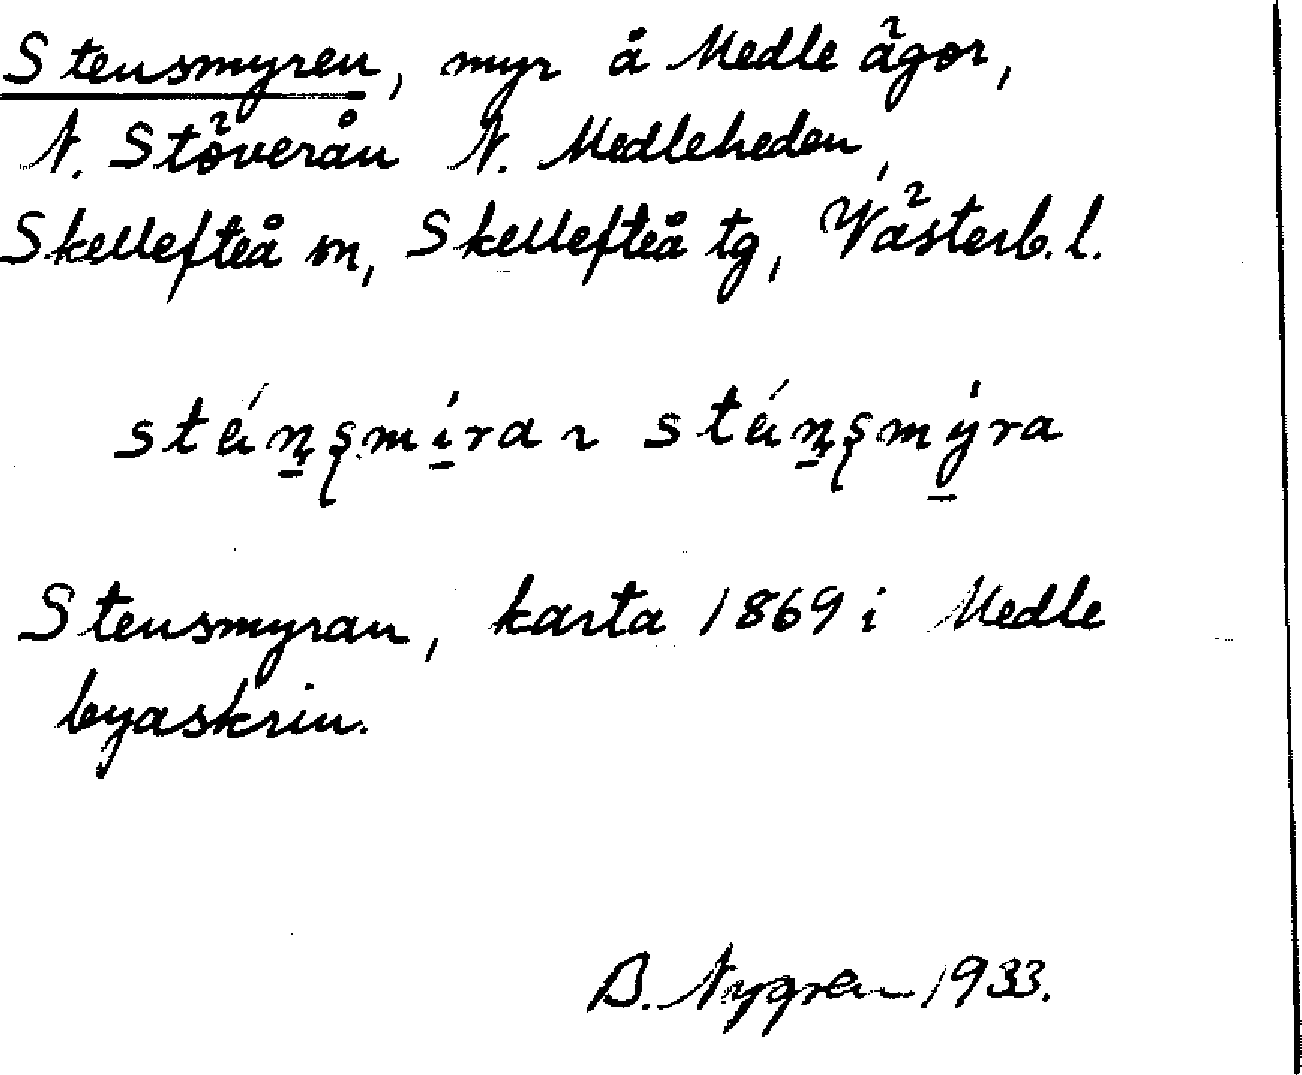 Stensmyren, myr å Medle ägor,
N. Stöverån N. Medleheden,
Skellefteå sn, Skellefteå tg, Västerb. l.
Stensmyran, karta 1869 i Medle
byaskrin.
B. Nygren 1933.